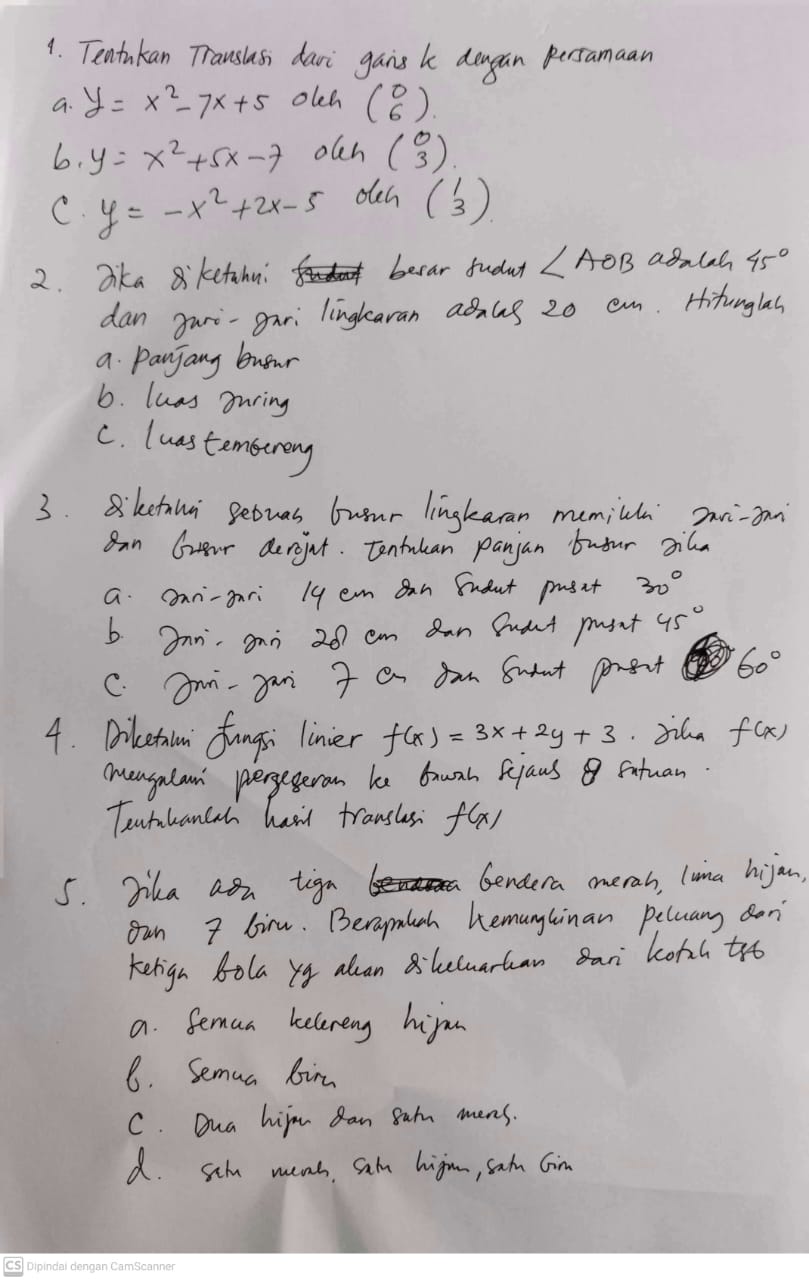 1. Tentukan Translasi dari garis k dengan persamaan
a. y = x² - 7x + 5 oleh (0 6).
b. y = x² + 5x - 7 oleh (0 3).
c. y = -x² + 2x - 5 oleh (1 3).
2. Jika diketahui besar sudut < AOB adalah 45°
dan jari-jari lingkaran adalah 20 cm. Hitunglah
a. panjang busur
b. luas juring
c. luas tembereng
3. diketahui sebuah busur lingkaran memiliki jari-jari
dan busur derajat. tentukan panjan busur jika
a. jari-jari 14 cm dan sudut pusat 30°
b. jari-jari 28 cm dan sudut pusat 45°
c. jari-jari 7 cm dan sudut pusat 60°
4. Diketahui fungsi linier f(x) = 3x + 2y + 3. jika f(x)
mengalami pergeseran ke bawah sejauh 8 satuan.
Tentukanlah hasil translasi f(x)
5. Jika ada tiga bendera merah, lima hijau,
dan 7 biru. Berapakah kemungkinan peluang dari
ketiga bola yg akan dikeluarkan dari kotak tsb
a. semua kelereng hijau
b. semua biru
c. Dua hijau dan satu merah.
d. satu merah, satu hijau, satu biru
CS Dipindai dengan CamScanner